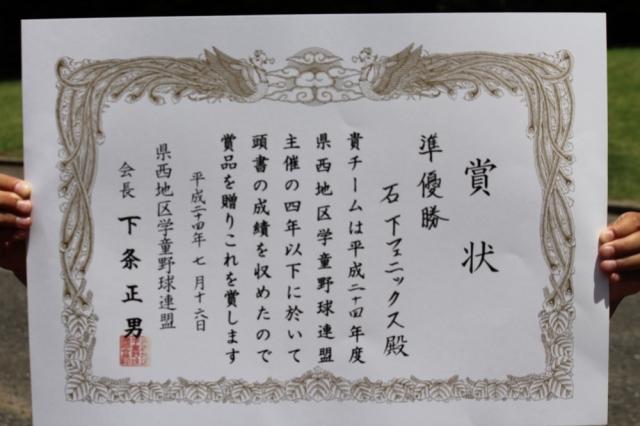 賞状
準優勝
石下フェニックス殿
貴チームは平成二十四年度
県西地区学童野球連盟
主催の四年以下に於いて
頭書の成績を収めたので
賞品を贈りこれを賞します
平成二十四年七月十六日
県西地区学童野球連盟
会長 下条正男